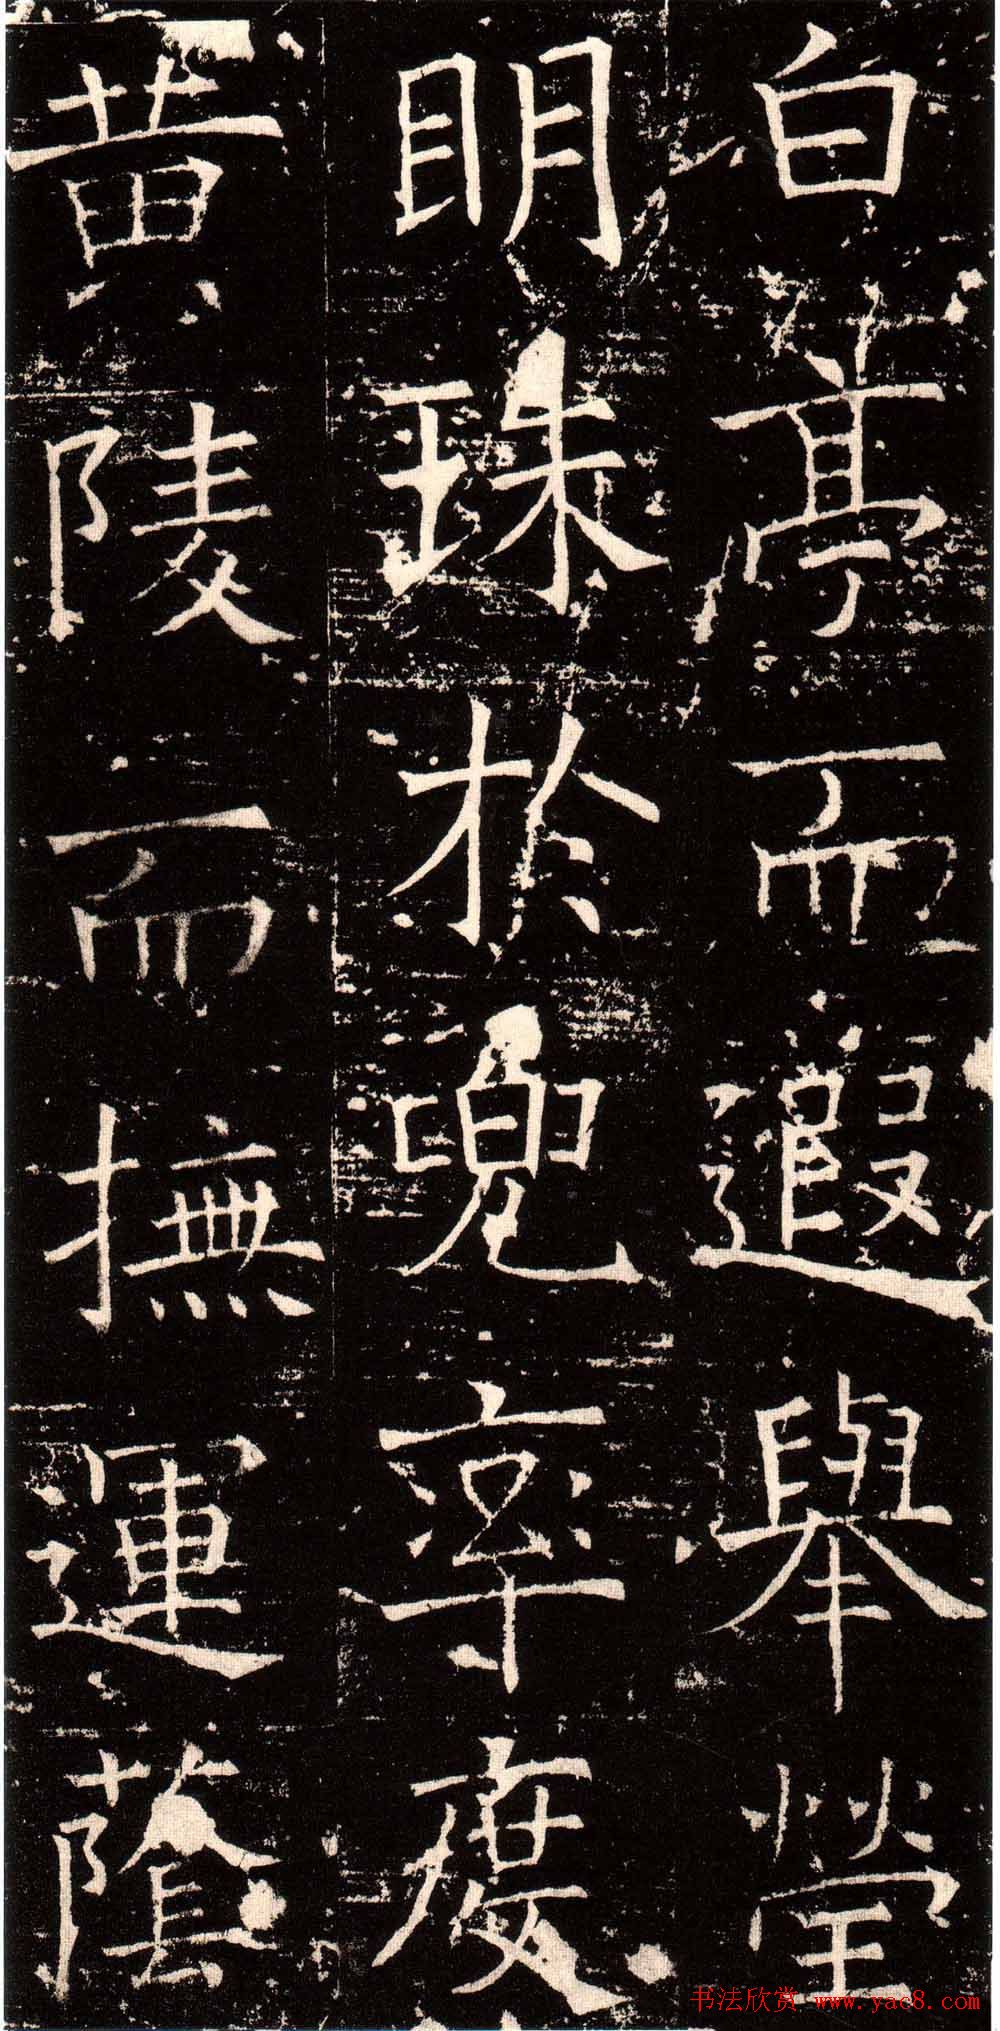 白亭而遐舉瑩
明珠於兜率度
黄陵而撫運蔭
书法欣赏 www.yac8.com